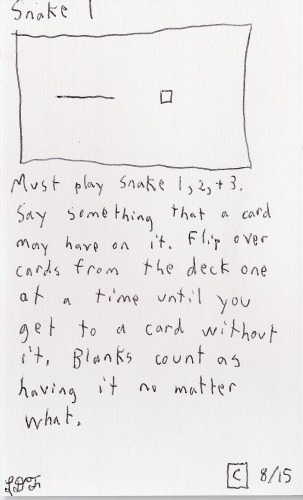 Snake 1
Must play snake 1, 2, + 3.
Say something that a card
may have on it. Flip over
cards from the deck one
at a time until you
get to a card without
it. Blanks count as
having it no matter
what.
C 8/15